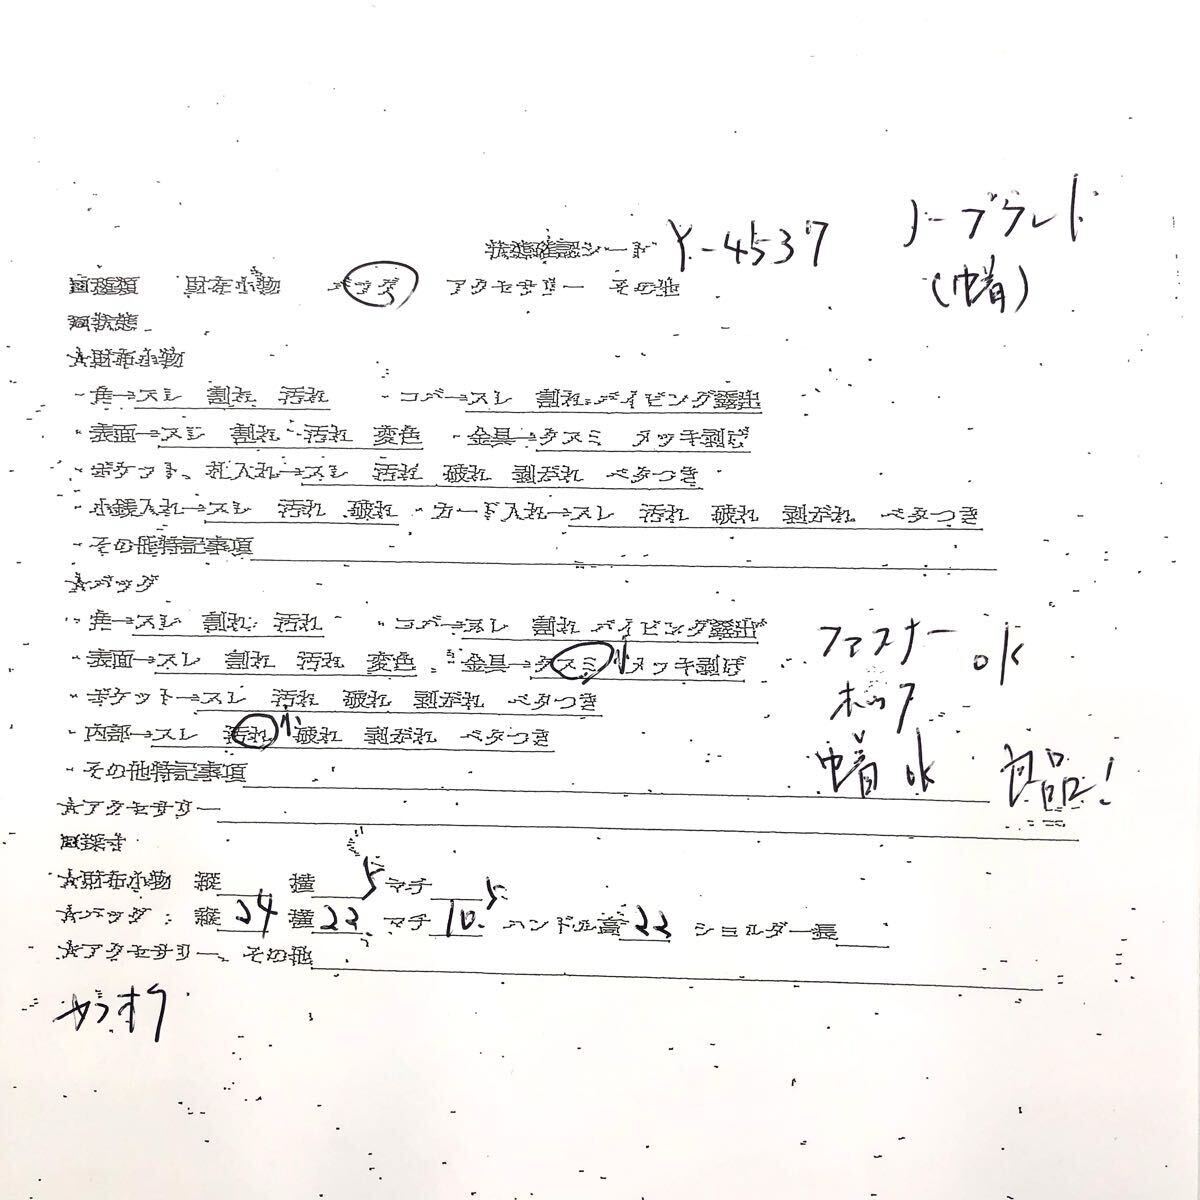 状態確認シート Y-4537 ノーブランド
(巾着)
回種類 財布小物 バッグ アクセサリー その他
回状態
☆財布小物
・角→スレ 割れ 汚れ ・コバ→スレ 割れ パイピング露出
・表面→スレ 割れ 汚れ 変色 ・金具→クスミ メッキ剥げ
・ポケット、札入れ→スレ 汚れ 破れ 剥がれ ベタつき
・小銭入れ→スレ 汚れ 破れ ・カード入れ→スレ 汚れ 破れ 剥がれ ベタつき
・その他特記事項
☆バッグ
・角→スレ 割れ 汚れ ・コバ→スレ 割れ パイピング露出
・表面→スレ 割れ 汚れ 変色 ・金具→クスミ 小 メッキ剥げ
・ポケット→スレ 汚れ 破れ 剥がれ ベタつき
・内部→スレ 汚れ 小 破れ 剥がれ ベタつき
ファスナー ok
ホック
巾着 ok 良品!
・その他特記事項
☆アクセサリー
回採寸
☆財布小物 縦 横 マチ
☆バッグ:縦 24 横 22. マチ 10.5 ハンドル高 22 ショルダー長
☆アクセサリー、その他